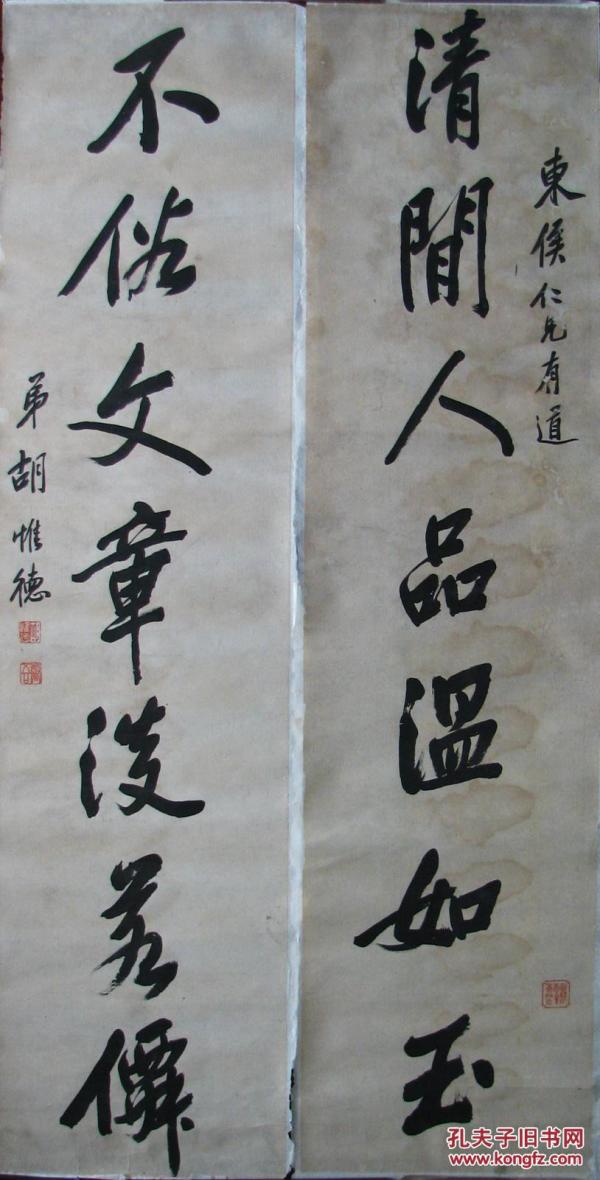 東侯仁兄有道
清閒人品溫如玉
不俗文章淡若僊
弟胡惟德
孔夫子旧书网
www.kongfz.com